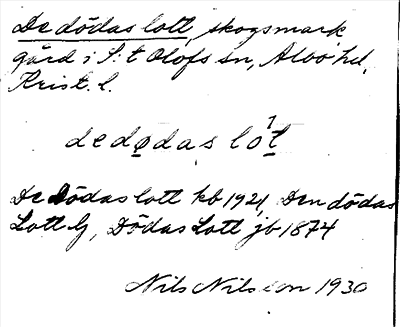 De dödas lott, skogsmark
gård i S:t Olofs sn, Albo hd,
Krist. l.
dedødas lot
De dödas lott kb 1921, Den dödas
Lott G, Dödas Lott jb 1874
Nils Nilsson 1930